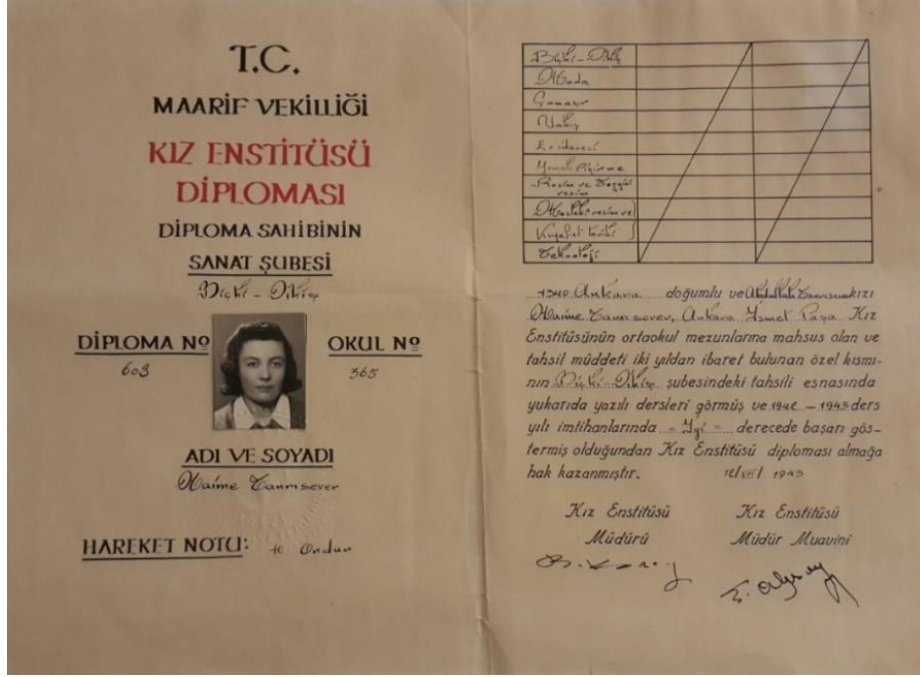 T.C.
MAARİF VEKİLLİĞİ
KIZ ENSTİTÜSÜ
DİPLOMASI
DİPLOMA SAHİBİNİN
SANAT ŞUBESİ
Biçki - Dikiş
DİPLOMA Nº
603
OKUL Nº
365
ADI VE SOYADI
Naime Tanrısever
HAREKET NOTU: 10 Ondur
Biçki - Dikiş
Moda
Çamaşır
Nakış
Ev idaresi
Yemek Pişirme
Resim ve Tezyini
resim
Mesleki resim ve
Kıyafet tarihi
Teknoloji
1340 Ankara doğumlu ve Abdullah Tanrısever kızı
Naime Tanrısever, Ankara İsmet Paşa Kız
Enstitüsünün ortaokul mezunlarına mahsus olan ve
tahsil müddeti iki yıldan ibaret bulunan özel kısmı-
nın Biçki-Dikiş şubesindeki tahsili esnasında
yukarıda yazılı dersleri görmüş ve - 1943 ders
yılı imtihanlarında - İyi - derecede başarı gös-
termiş olduğundan Kız Enstitüsü diploması almağa
hak kazanmıştır. 1943
Kız Enstitüsü
Müdürü
Kız Enstitüsü
Müdür Muavini